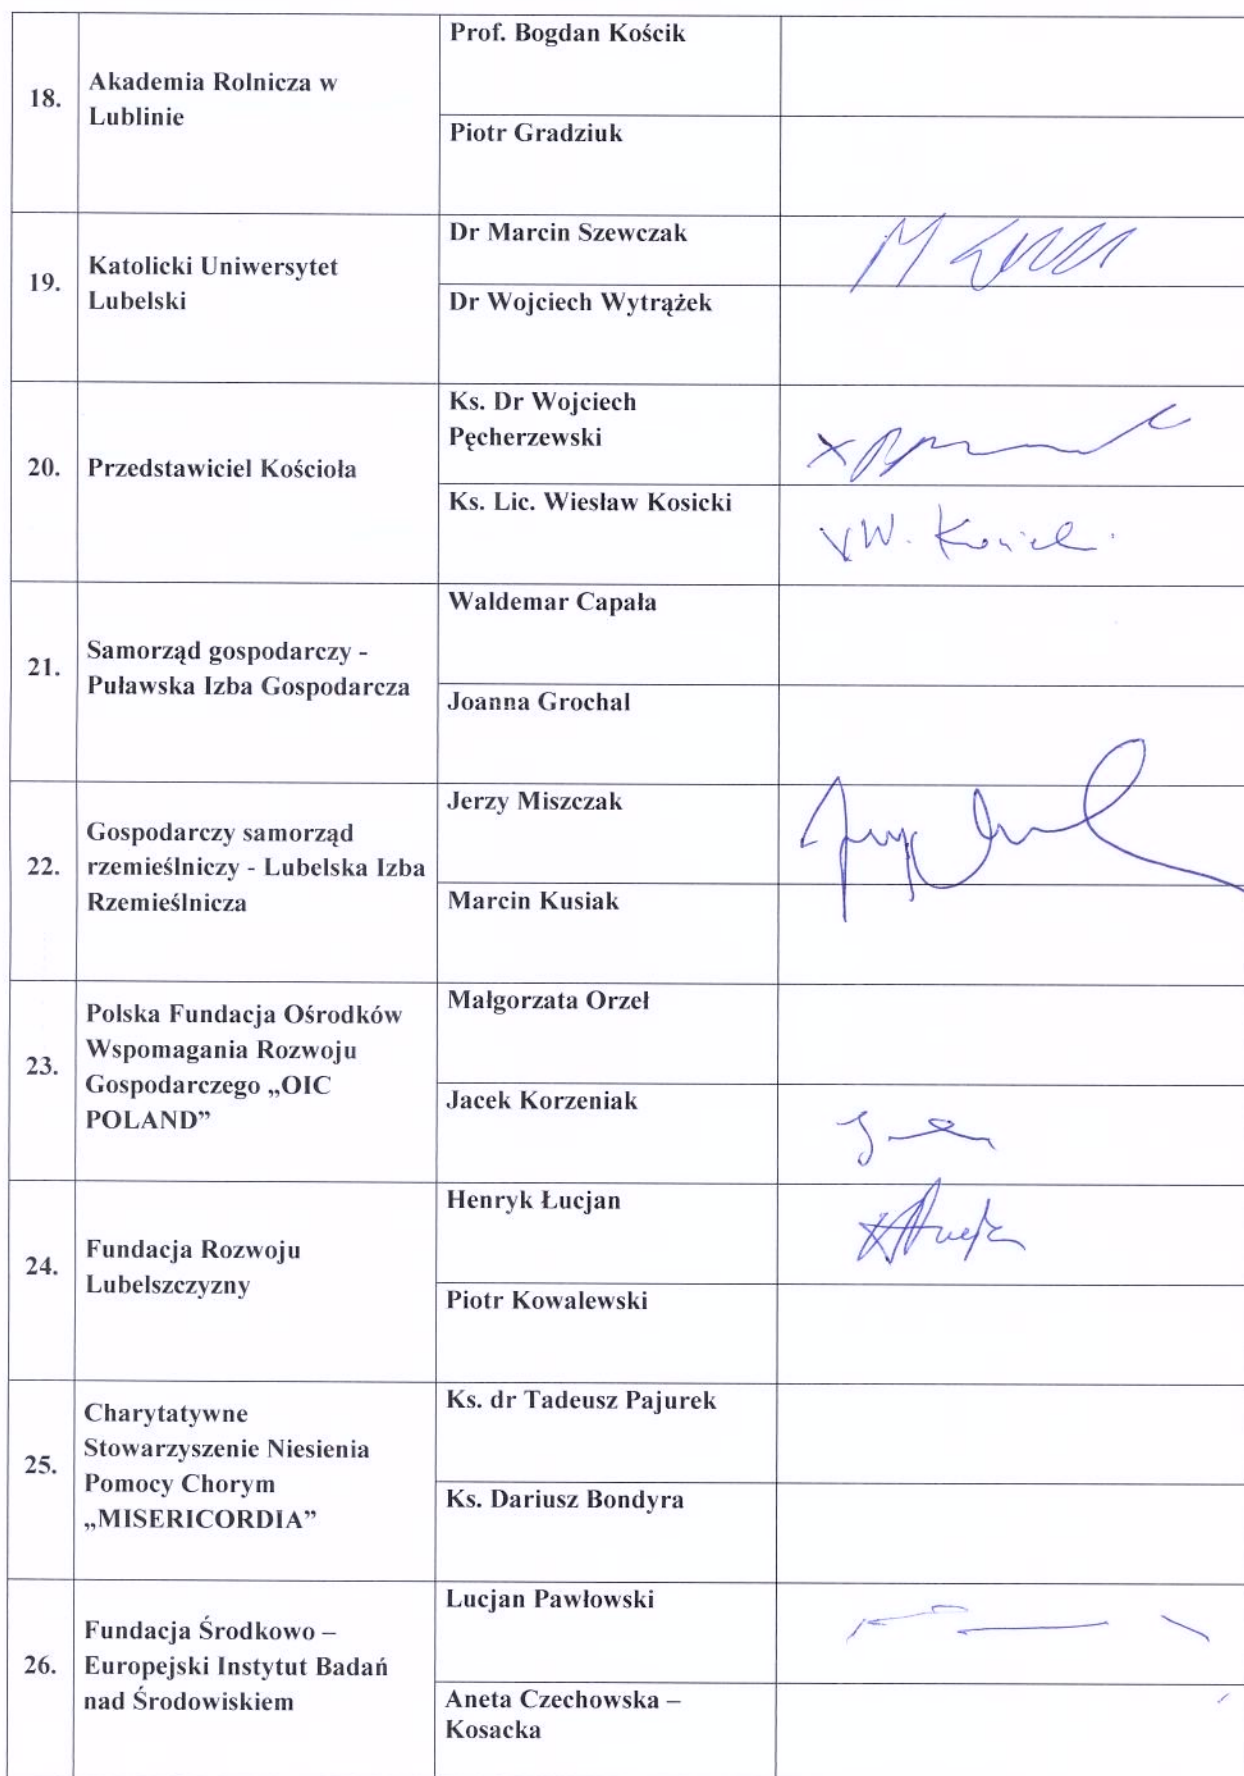 18.
Akademia Rolnicza w
Lublinie
Prof. Bogdan Kościk
Piotr Gradziuk
19.
Katolicki Uniwersytet
Lubelski
Dr Marcin Szewczak
Dr Wojciech Wytrążek
20.
Przedstawiciel Kościoła
Ks. Dr Wojciech
Pęcherzewski
Ks. Lic. Wiesław Kosicki
21.
Samorząd gospodarczy -
Puławska Izba Gospodarcza
Waldemar Capała
Joanna Grochal
22.
Gospodarczy samorząd
rzemieślniczy - Lubelska Izba
Rzemieślnicza
Jerzy Miszczak
Marcin Kusiak
23.
Polska Fundacja Ośrodków
Wspomagania Rozwoju
Gospodarczego „OIC
POLAND”
Małgorzata Orzeł
Jacek Korzeniak
24.
Fundacja Rozwoju
Lubelszczyzny
Henryk Łucjan
Piotr Kowalewski
25.
Charytatywne
Stowarzyszenie Niesienia
Pomocy Chorym
„MISERICORDIA”
Ks. dr Tadeusz Pajurek
Ks. Dariusz Bondyra
26.
Fundacja Środkowo –
Europejski Instytut Badań
nad Środowiskiem
Lucjan Pawłowski
Aneta Czechowska –
Kosacka